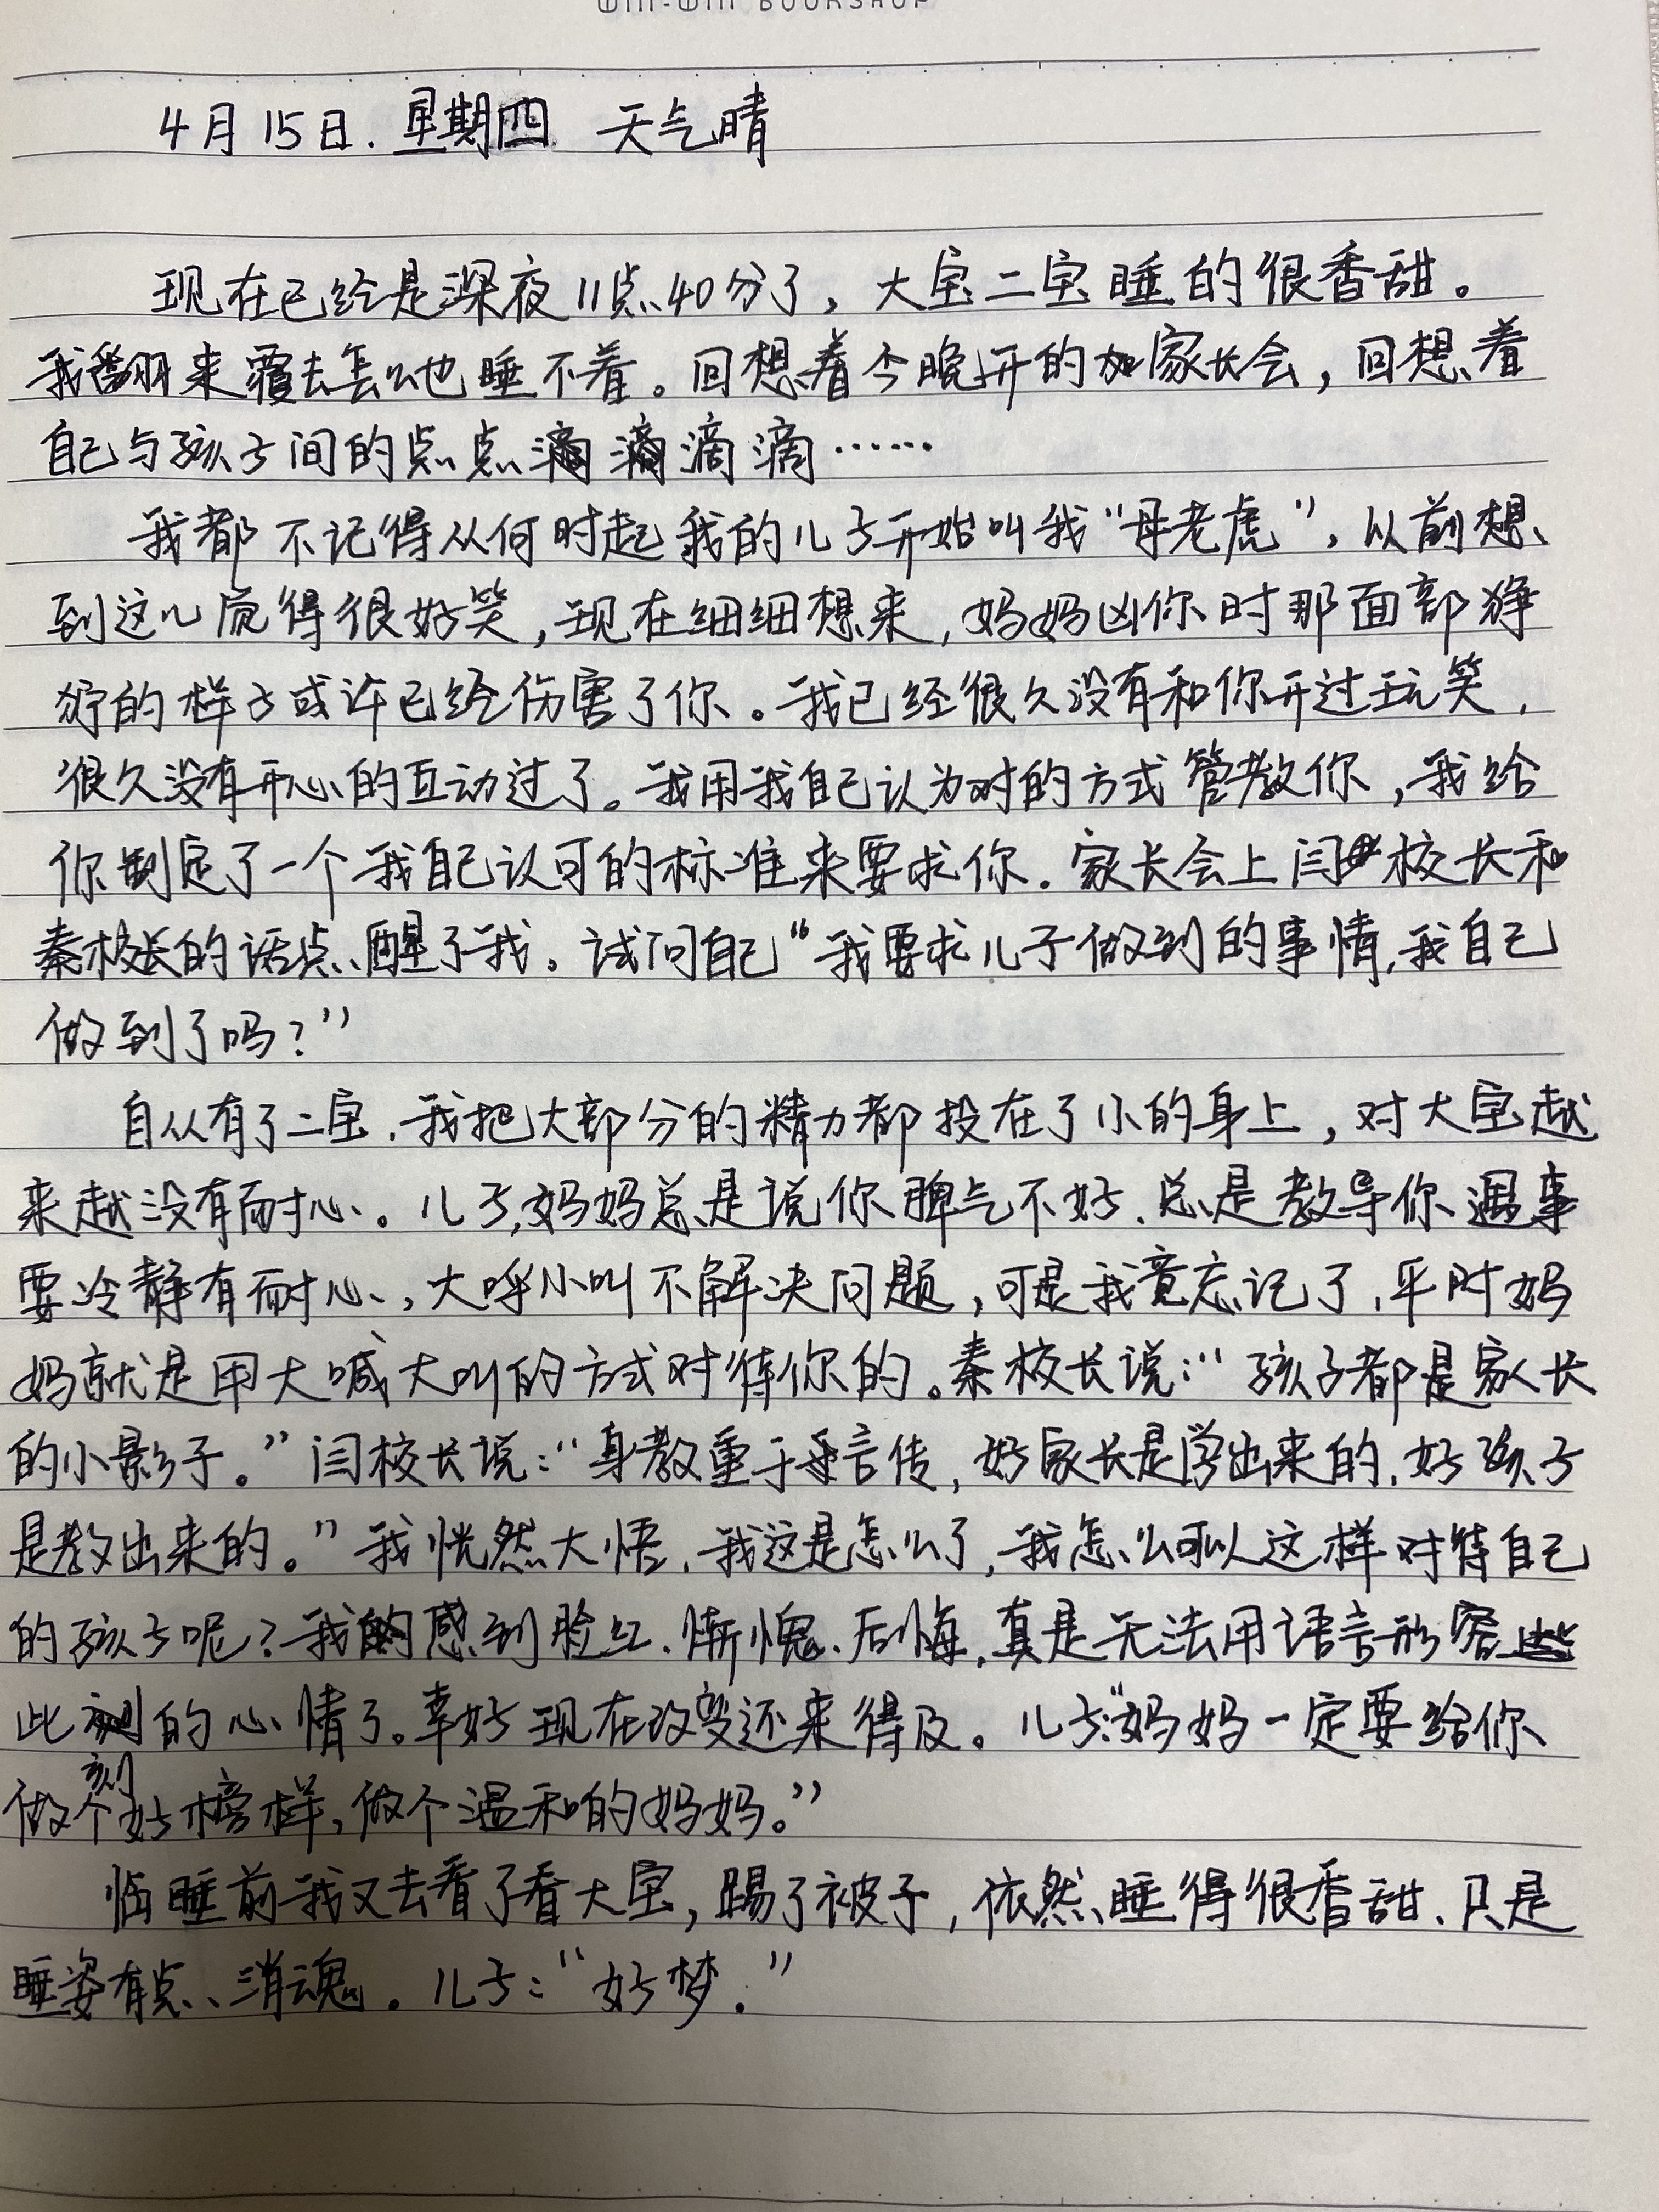 WIN-WIN BOOKSHOP
4月15日.星期四 天气晴
现在已经是深夜11点40分了，大宝二宝睡的很香甜。
我翻来覆去怎么也睡不着。回想着今晚开的家长会，回想着
自己与孩子间的点点滴滴滴滴……
我都不记得从何时起我的儿子开始叫我“母老虎”，以前想
到这儿觉得很好笑，现在细细想来，妈妈凶你时那面部狰
狞的样子或许已经伤害了你。我已经很久没有和你开过玩笑，
很久没有开心的互动过了。我用我自己认为对的方式管教你，我给
你制定了一个我自己认可的标准来要求你。家长会上闫校长和
秦校长的话点醒了我。试问自己“我要求儿子做到的事情，我自己
做到了吗？”
自从有了二宝，我把大部分的精力都投在了小的身上，对大宝越
来越没有耐心。儿子，妈妈总是说你脾气不好、总是教导你遇事
要冷静有耐心，大呼小叫不解决问题，可是我竟忘记了，平时妈
妈就是用大喊大叫的方式对待你的。秦校长说：“孩子都是家长
的小影子。”闫校长说：“身教重于言传，好家长是学出来的，好孩子
是教出来的。”我恍然大悟，我这是怎么了，我怎么可以这样对待自己
的孩子呢？我感到脸红、惭愧、后悔，真是无法用语言形容
此刻的心情了。幸好现在改变还来得及。儿子：“妈妈一定要给你
做个好榜样，做个温和的妈妈。”
临睡前我又去看了看大宝，踢了被子，依然睡得很香甜、只是
睡姿有点消魂。儿子：“好梦.”